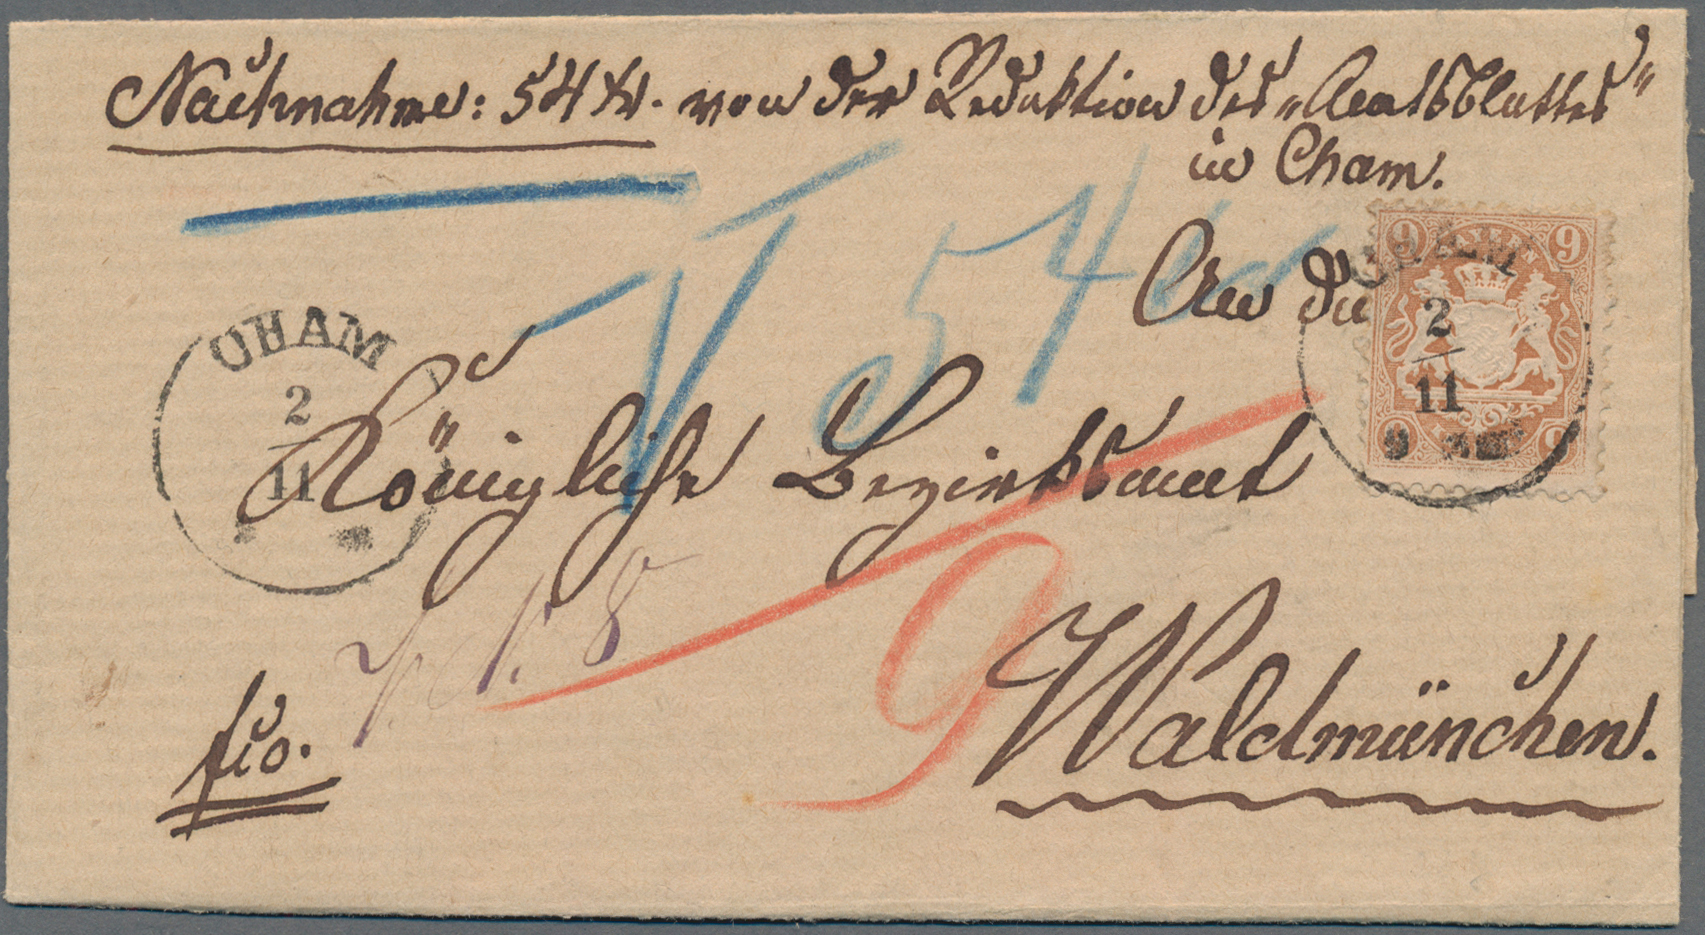 Nachnahme: 54 Xr. von der Redaktion des „Amtsblattes"
in Cham.
54
An die
9 BAYERN 9
CHAM
2
11
9
CHAM
2
11
Königliche Bezirksamt
8
9
Waldmünchen.
fco.